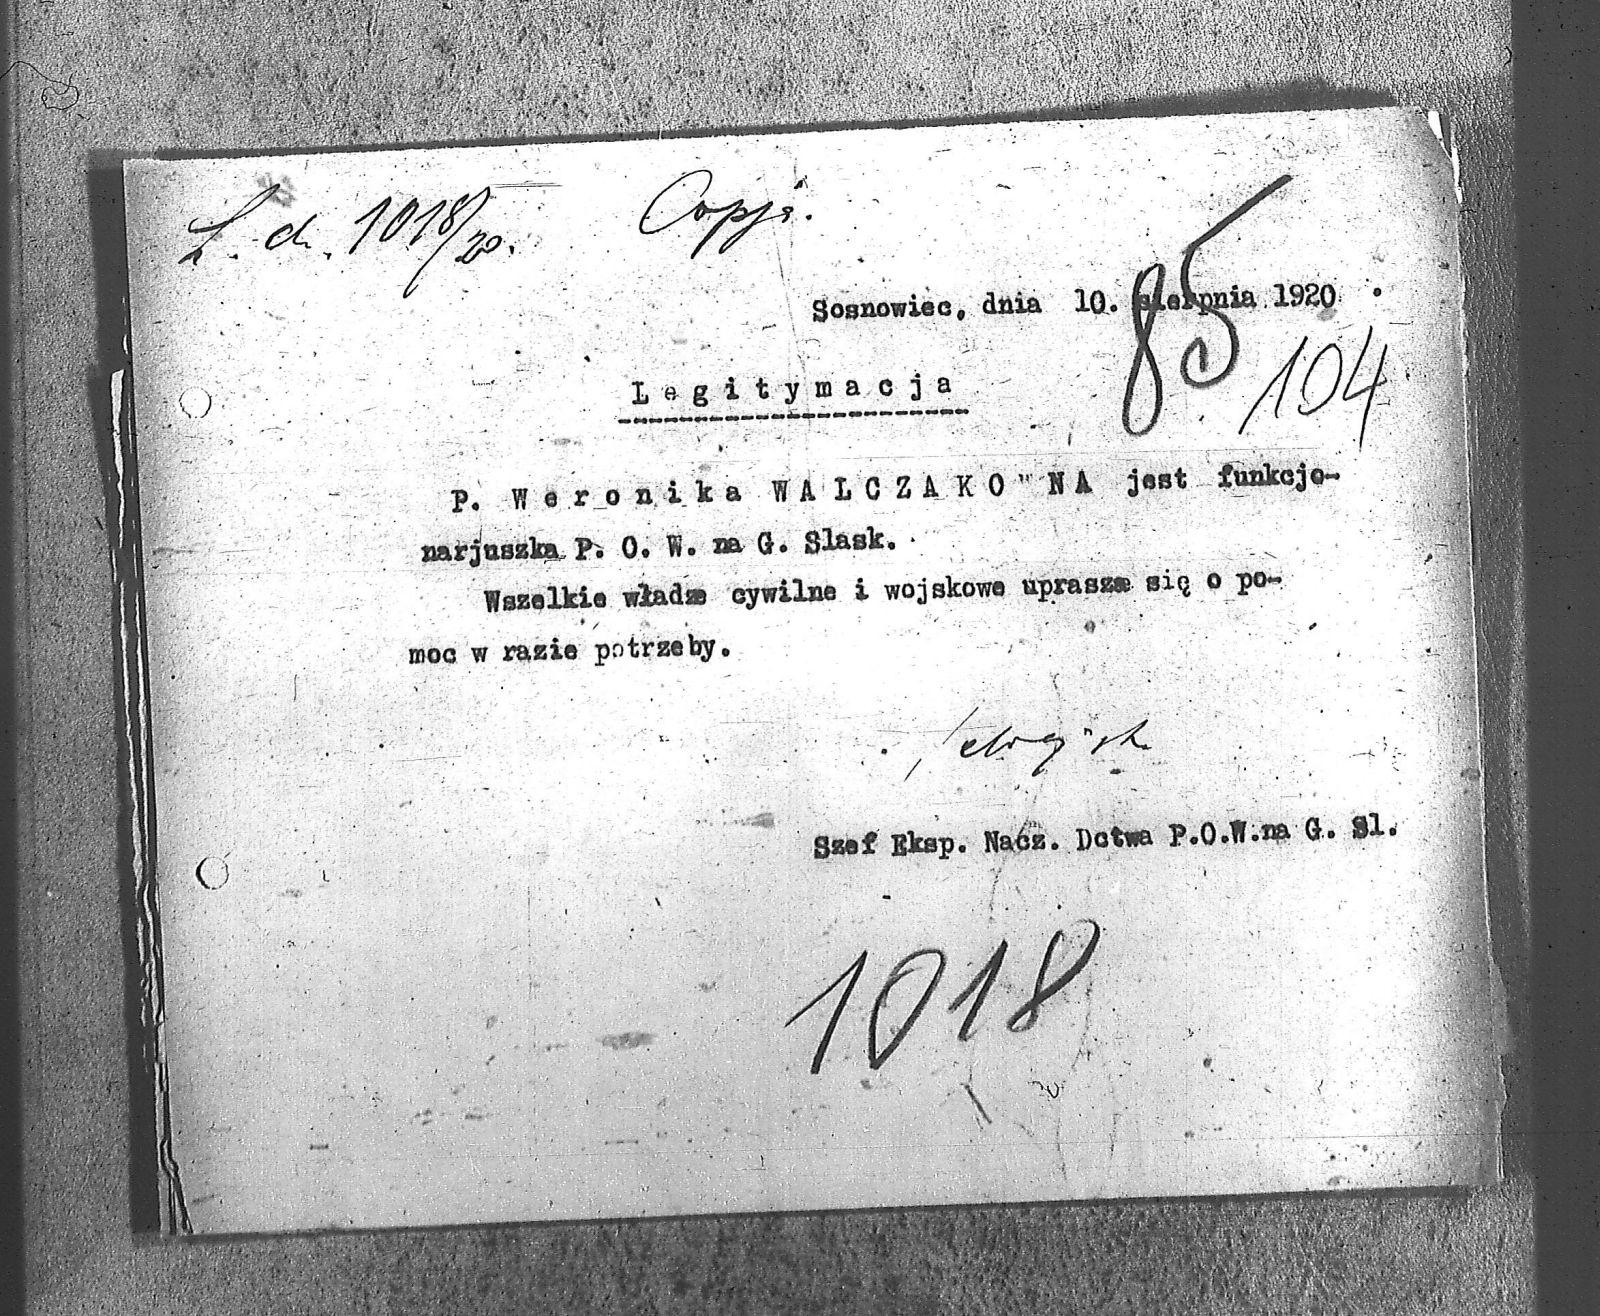 L. d. 1018/20. Copja.
85
Sosnowiec, dnia 10. sierpnia 1920
104
Legitymacja
P. Weronika WALCZAKO"NA jest funkcjo-
narjuszka P. O. W. na G. Slask.
Wszelkie władze cywilne i wojskowe uprasza się o po-
moc w razie potrzeby.
Szef Eksp. Nacz. Dctwa P.O.W.na G. Sl.
1018